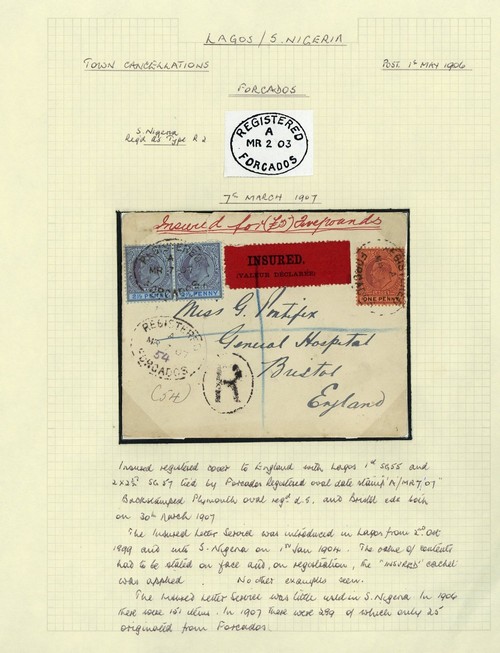 LAGOS / S. NIGERIA
TOWN CANCELLATIONS
POST 1st MAY 1906
FORCADOS
S. Nigeria
Regd DS Type R2
REGISTERED
A
MR 2 03
FORCADOS
7th MARCH 1907
Insured for (£5) Five pounds
REGISTERED
A
MR 7
FORCADOS
PENNY
INSURED.
(VALEUR DECLAREE)
ONE PENNY
REGISTERED
MR 07
54
FORCADOS
(54)
R
Miss G. Pontifex
General Hospital
Bristol
England
Insured registered cover to England with Lagos 1d SG55 and
2x2½d SG 57 tied by Forcados Registered oval date stamp "A/MR7 07"
Backstamped Plymouth oval regd d.s. and Bristol cds both
on 30th March 1907
The Insured Letter Service was introduced in Lagos from 2nd Oct
1899 and into S. Nigeria on 1st Jan 1904. The value of contents
had to be stated on face and, on registration, the "INSURED" cachet
was applied. No other examples seen.
The Insured Letter Service was little used in S. Nigeria. In 1906
there were 151 items. In 1907 there were 299 of which only 25
originated from Forcados.